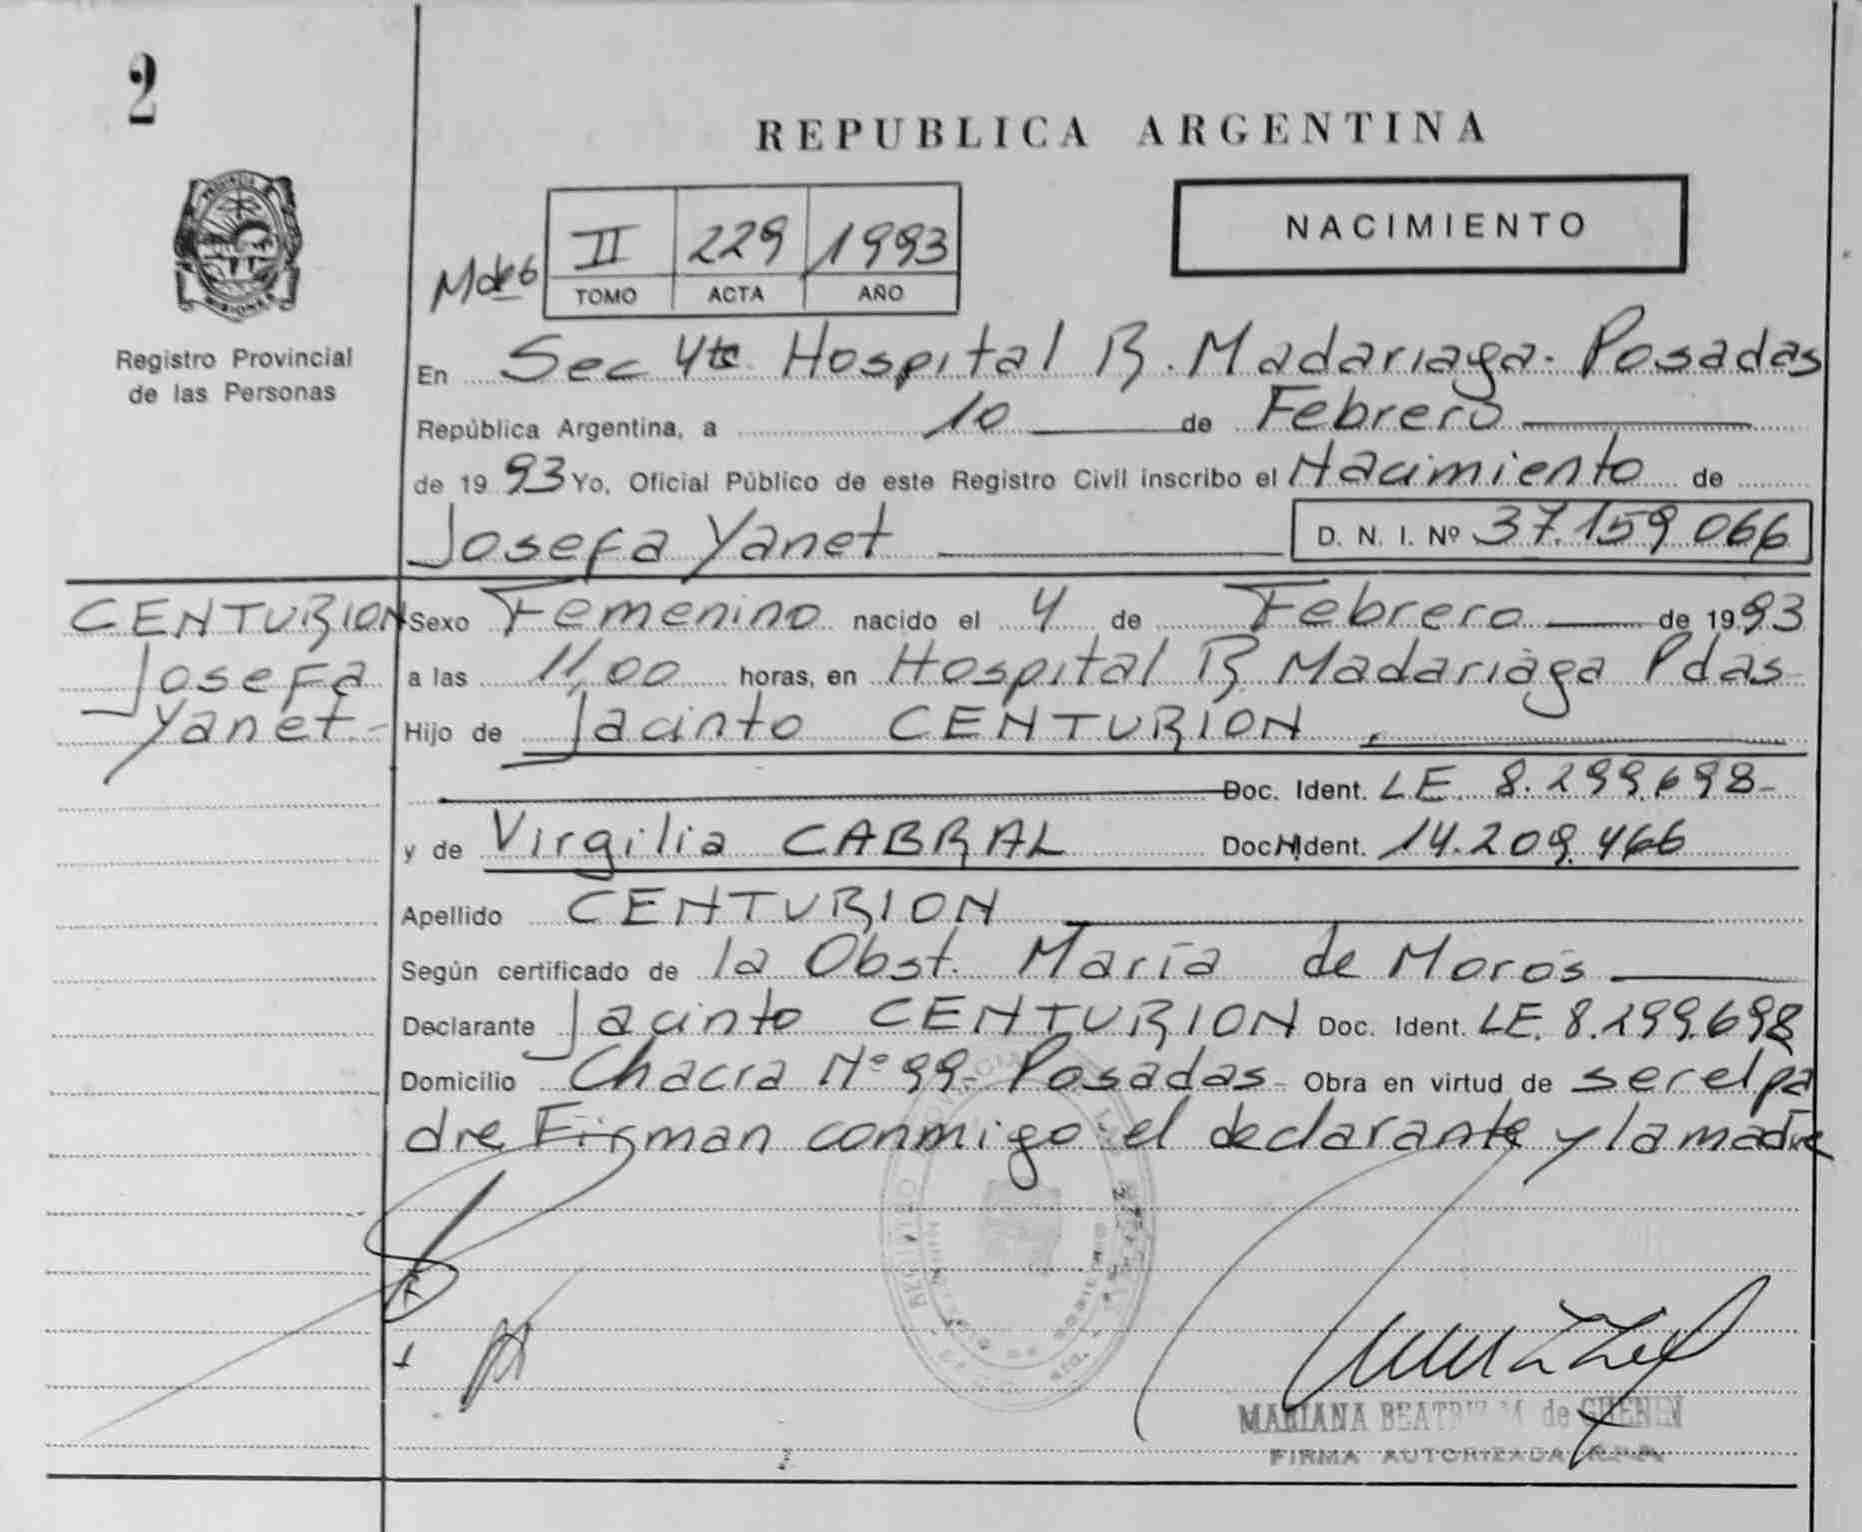 2
REPUBLICA ARGENTINA
NACIMIENTO
II 229 1993
TOMO ACTA AÑO
Registro Provincial
de las Personas
En Sec 4ta Hospital R. Madariaga - Posadas
República Argentina, a 10 de Febrero
de 1993 Yo, Oficial Público de este Registro Civil inscribo el Nacimiento de
Josefa Yanet D. N. I. Nº 37.159.066
CENTURION
Josefa
Yanet.-
Sexo Femenino nacido el 4 de Febrero de 1993
a las 11,00 horas, en Hospital R. Madariaga Pdas-
Hijo de Jacinto CENTURION
Doc. Ident. LE 8.299.698-
y de Virgilia CABRAL Doc. Ident. 14.209.466
Apellido CENTURION
Según certificado de la Obst. María de Moros
Declarante Jacinto CENTURION Doc. Ident. LE. 8.299.698
Domicilio Chacra Nº 99- Posadas- Obra en virtud de ser el pa
dre Firman conmigo el declarante y la madre
MARIANA BEATRIZ M. de GHENIN
FIRMA AUTORIZADA R.P.P.